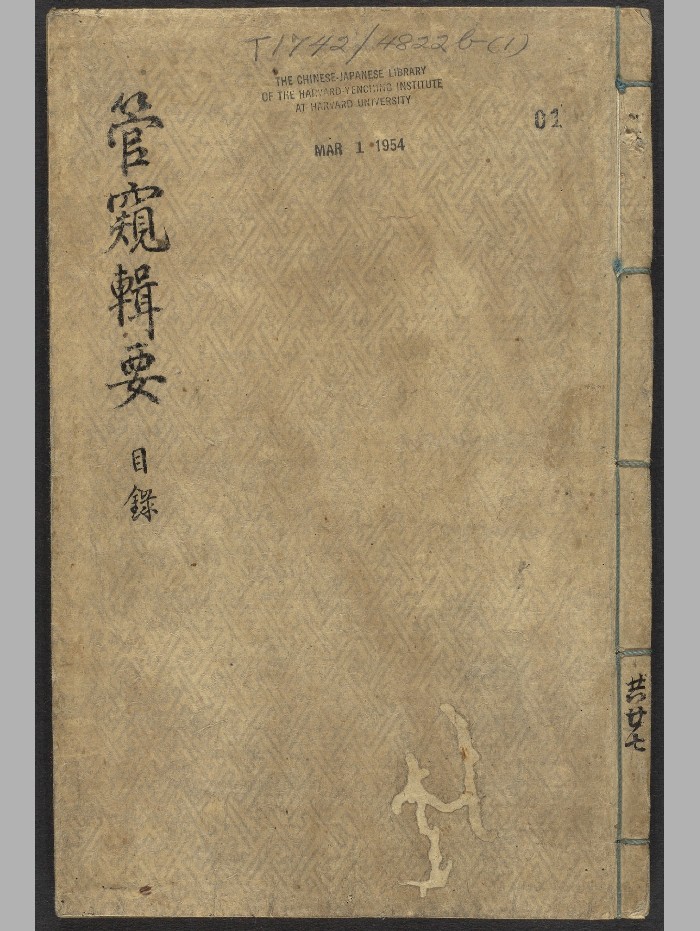 T1742/4822b(1)
THE CHINESE-JAPANESE LIBRARY
OF THE HARVARD-YENCHING INSTITUTE
AT HARVARD UNIVERSITY
MAR 1 1954
01
管窺輯要
目錄
共廿七